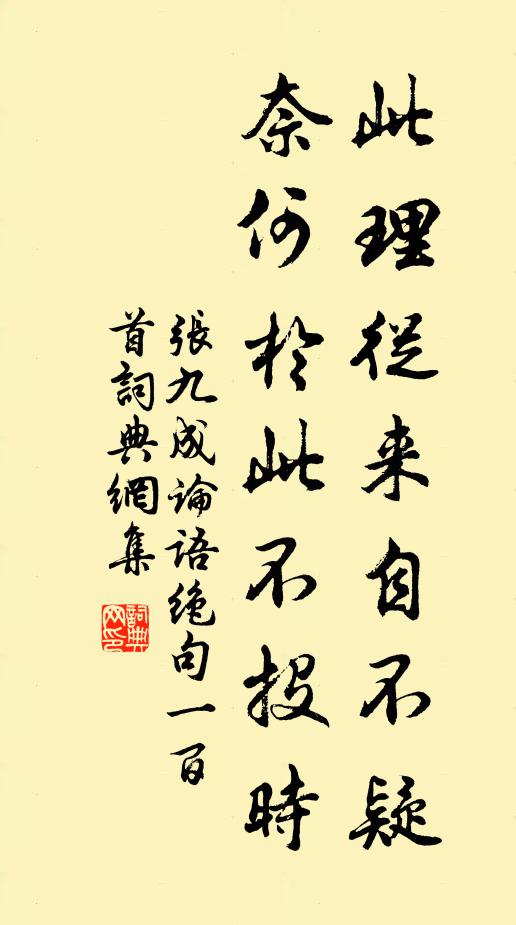 此理從来自不疑
奈何於此不投時
張九成論語絶句一百
首詞典網集
詞典
网印